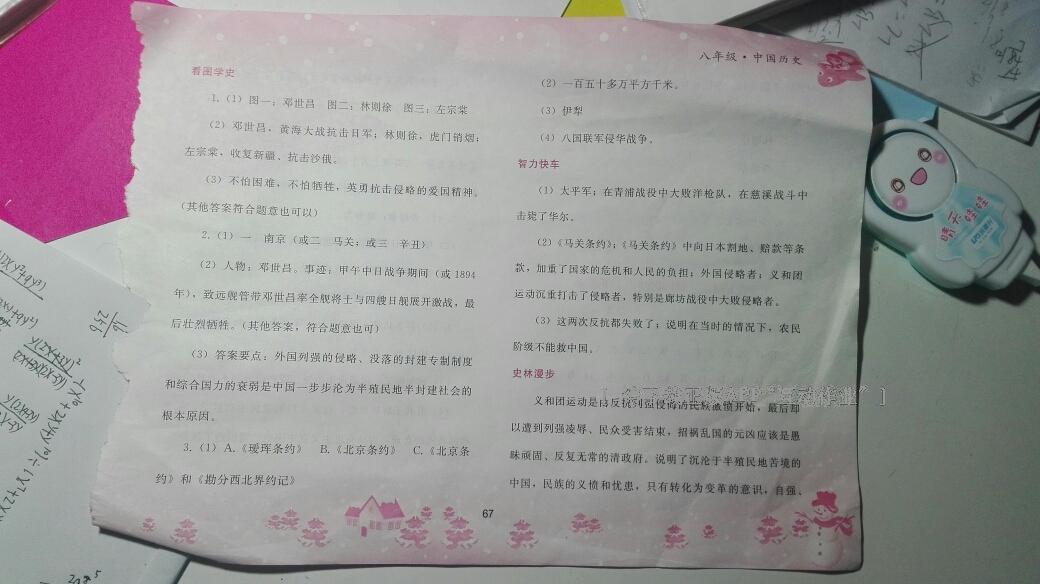 八年级·中国历史
看图学史
1.(1) 图一:邓世昌 图二:林则徐 图三:左宗棠
(2) 邓世昌,黄海大战抗击日军;林则徐,虎门销烟;
左宗棠,收复新疆、抗击沙俄。
(3) 不怕困难,不怕牺牲,英勇抗击侵略的爱国精神。
(其他答案符合题意也可以)
2.(1) 一 南京(或二 马关;或三 辛丑)
(2) 人物:邓世昌。事迹:甲午中日战争期间(或1894
年),致远舰管带邓世昌率全舰将士与四艘日舰展开激战,最
后壮烈牺牲。(其他答案,符合题意也可)
(3) 答案要点:外国列强的侵略、没落的封建专制制度
和综合国力的衰弱是中国一步步沦为半殖民地半封建社会的
根本原因。
3.(1) A.《瑷珲条约》 B.《北京条约》 C.《北京条
约》和《勘分西北界约记》
(2) 一百五十多万平方千米。
(3) 伊犁
(4) 八国联军侵华战争。
智力快车
(1) 太平军;在青浦战役中大败洋枪队,在慈溪战斗中
击毙了华尔。
(2)《马关条约》;《马关条约》中向日本割地、赔款等条
款,加重了国家的危机和人民的负担;外国侵略者;义和团
运动沉重打击了侵略者,特别是廊坊战役中大败侵略者。
(3) 这两次反抗都失败了;说明在当时的情况下,农民
阶级不能救中国。
史林漫步
义和团运动是由反抗列强侵侮的民族激愤开始,最后却
以遭到列强凌辱、民众受害结束,招祸乱国的元凶应该是愚
昧顽固、反复无常的清政府。说明了沉沦于半殖民地苦境的
中国,民族的义愤和忧患,只有转化为变革的意识,自强、
67
晴天娃娃